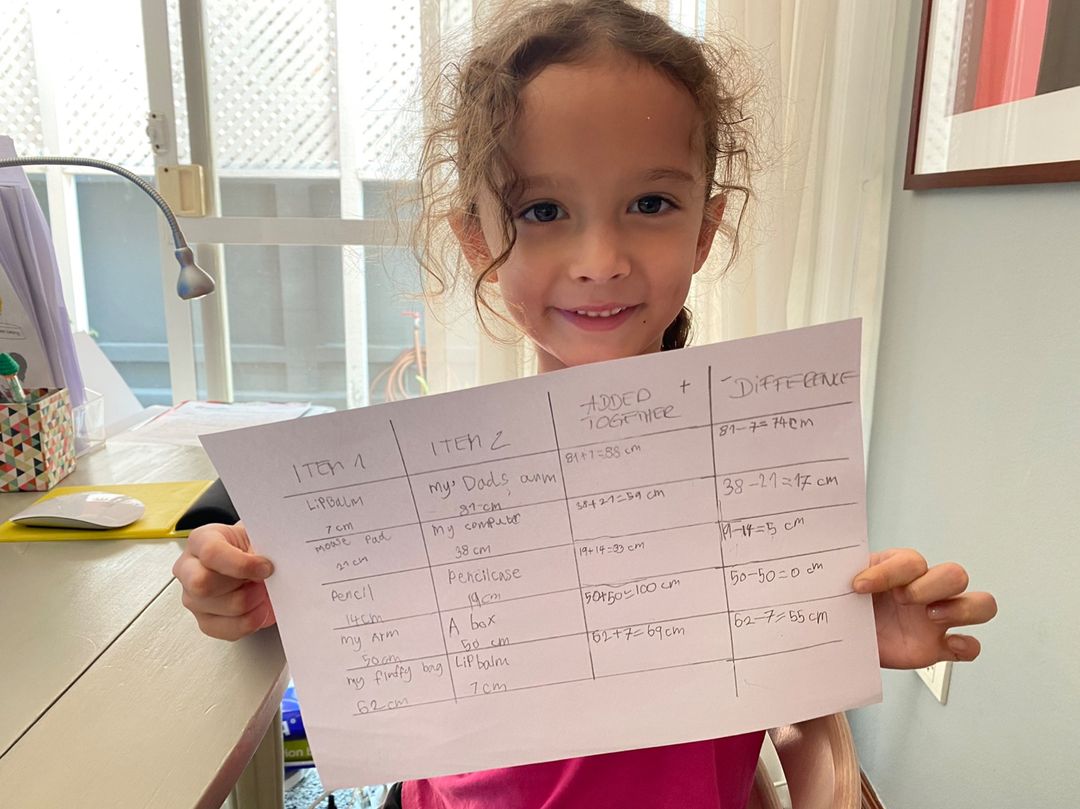 ITEM 1
ITEM 2
ADDED + TOGETHER
- DIFFERENCE
LipBalm
7 cm
my, Dads, arm
81 cm
81+7=88 cm
81-7=74 cm
mouse pad
21 cm
my computer
38 cm
38+21=59 cm
38-21=17 cm
Pencil
14cm
Pencilcase
19cm
19+14=33 cm
19-14=5 cm
my Arm
50cm
A box
50 cm
50+50=100 cm
50-50=0 cm
my fluffy bag
62 cm
Lip balm
7 cm
62+7=69cm
62-7=55 cm